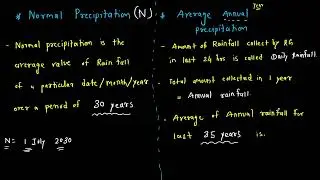 * Normal Precipitation (N)
- Normal precipitation is the
average value of Rainfall
of a particular date/month/year
over a period of 30 years
N = 1 July 2030
* Average Annual
precipitation
- Amount of Rainfall collect by RG
in last 24 hrs is called Daily Rainfall.
- Total amount collected in 1 year
= Annual rainfall.
- Average of Annual rainfall for
last 35 years is.